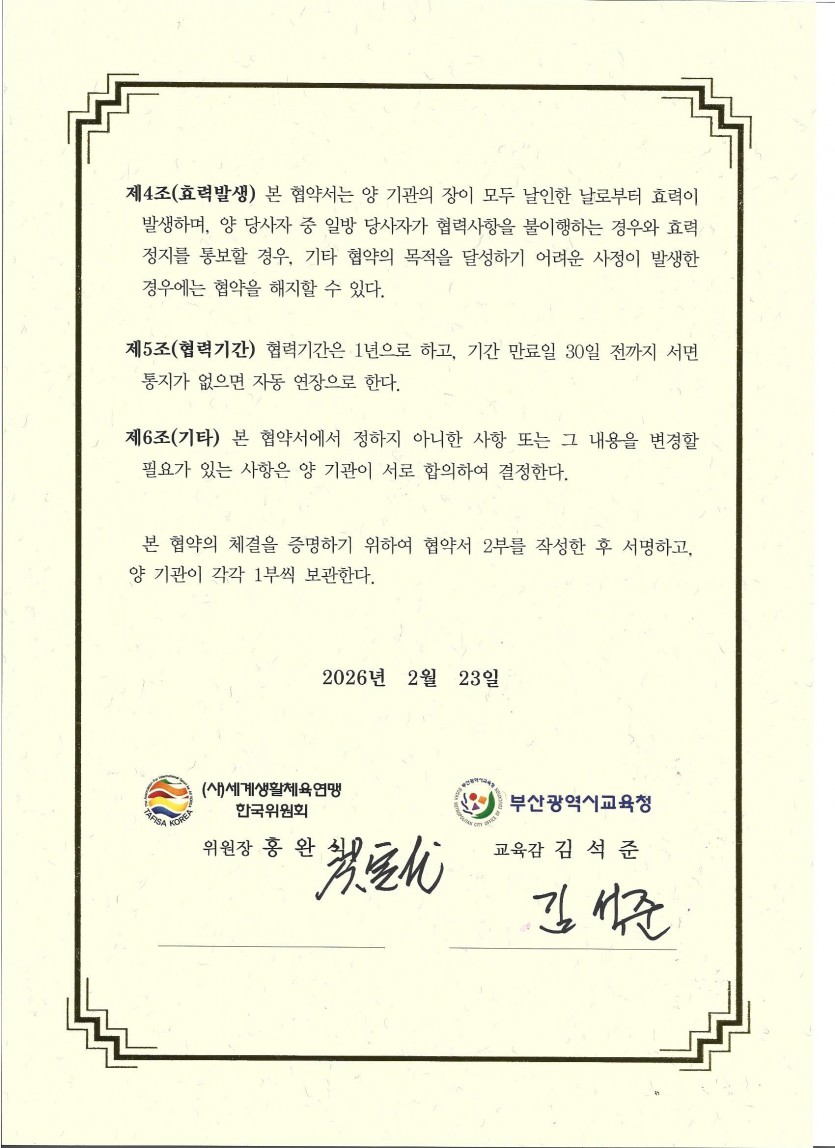 제4조(효력발생) 본 협약서는 양 기관의 장이 모두 날인한 날로부터 효력이
발생하며, 양 당사자 중 일방 당사자가 협력사항을 불이행하는 경우와 효력
정지를 통보할 경우, 기타 협약의 목적을 달성하기 어려운 사정이 발생한
경우에는 협약을 해지할 수 있다.
제5조(협력기간) 협력기간은 1년으로 하고, 기간 만료일 30일 전까지 서면
통지가 없으면 자동 연장으로 한다.
제6조(기타) 본 협약서에서 정하지 아니한 사항 또는 그 내용을 변경할
필요가 있는 사항은 양 기관이 서로 합의하여 결정한다.
본 협약의 체결을 증명하기 위하여 협약서 2부를 작성한 후 서명하고,
양 기관이 각각 1부씩 보관한다.
2026년 2월 23일
TAFISA KOREA
(사)세계생활체육연맹
한국위원회
위원장 홍 완 식
부산광역시교육청
부산광역시교육청
교육감 김 석 준
김 석준